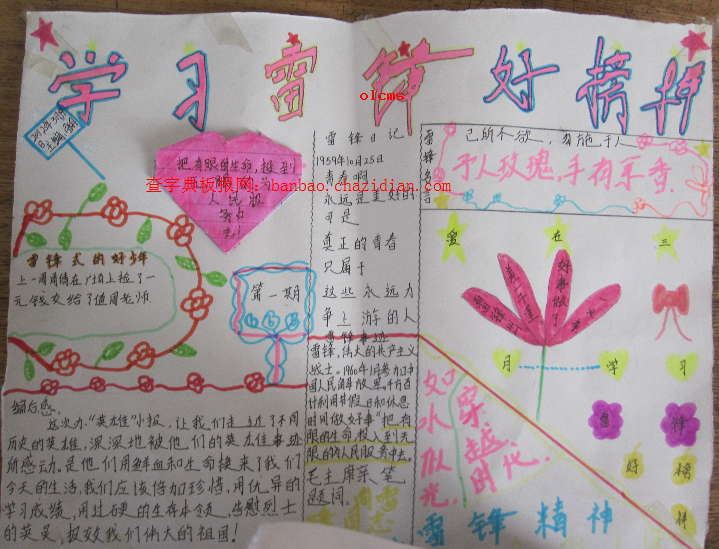 学习雷锋好榜样
olcms
查字典板报网：banbao.chazidian.com
把有限的生命，投到
人民服
务
雷锋式的好少年
上一周周倩在广场上捡了一
元钱交给了值周老师.
第一期
雷锋日记
1959年10月25日
青春啊
永远是美好的
可是
真正的青春
只属于
这些永远力
争上游的人
雷锋事迹
雷锋,伟大的共产主义
战士。1960年1月参加中
国人民解放军。千方百
计利用节假日和休息
时间做好事"把有
限的生命投入到无
限的人民服务中去。
毛主席亲笔
题词。
编后感.
这次办"英雄"小报,让我们走近了不同
历史的英雄,深深地被他们的英雄事迹
所感动.是他们用鲜血和生命换来了我们
今天的生活,我们应该倍加珍惜,用优异的
学习成绩,用过硬的生存本领,告慰烈士
的英灵,报效我们伟大的祖国!
雷锋名言
己所不欲,勿施于人
予人玫瑰,手有余香.
爱在三
月学习
雷锋
好榜
样
好事做了
如水似光,
穿越时代.
雷锋精神